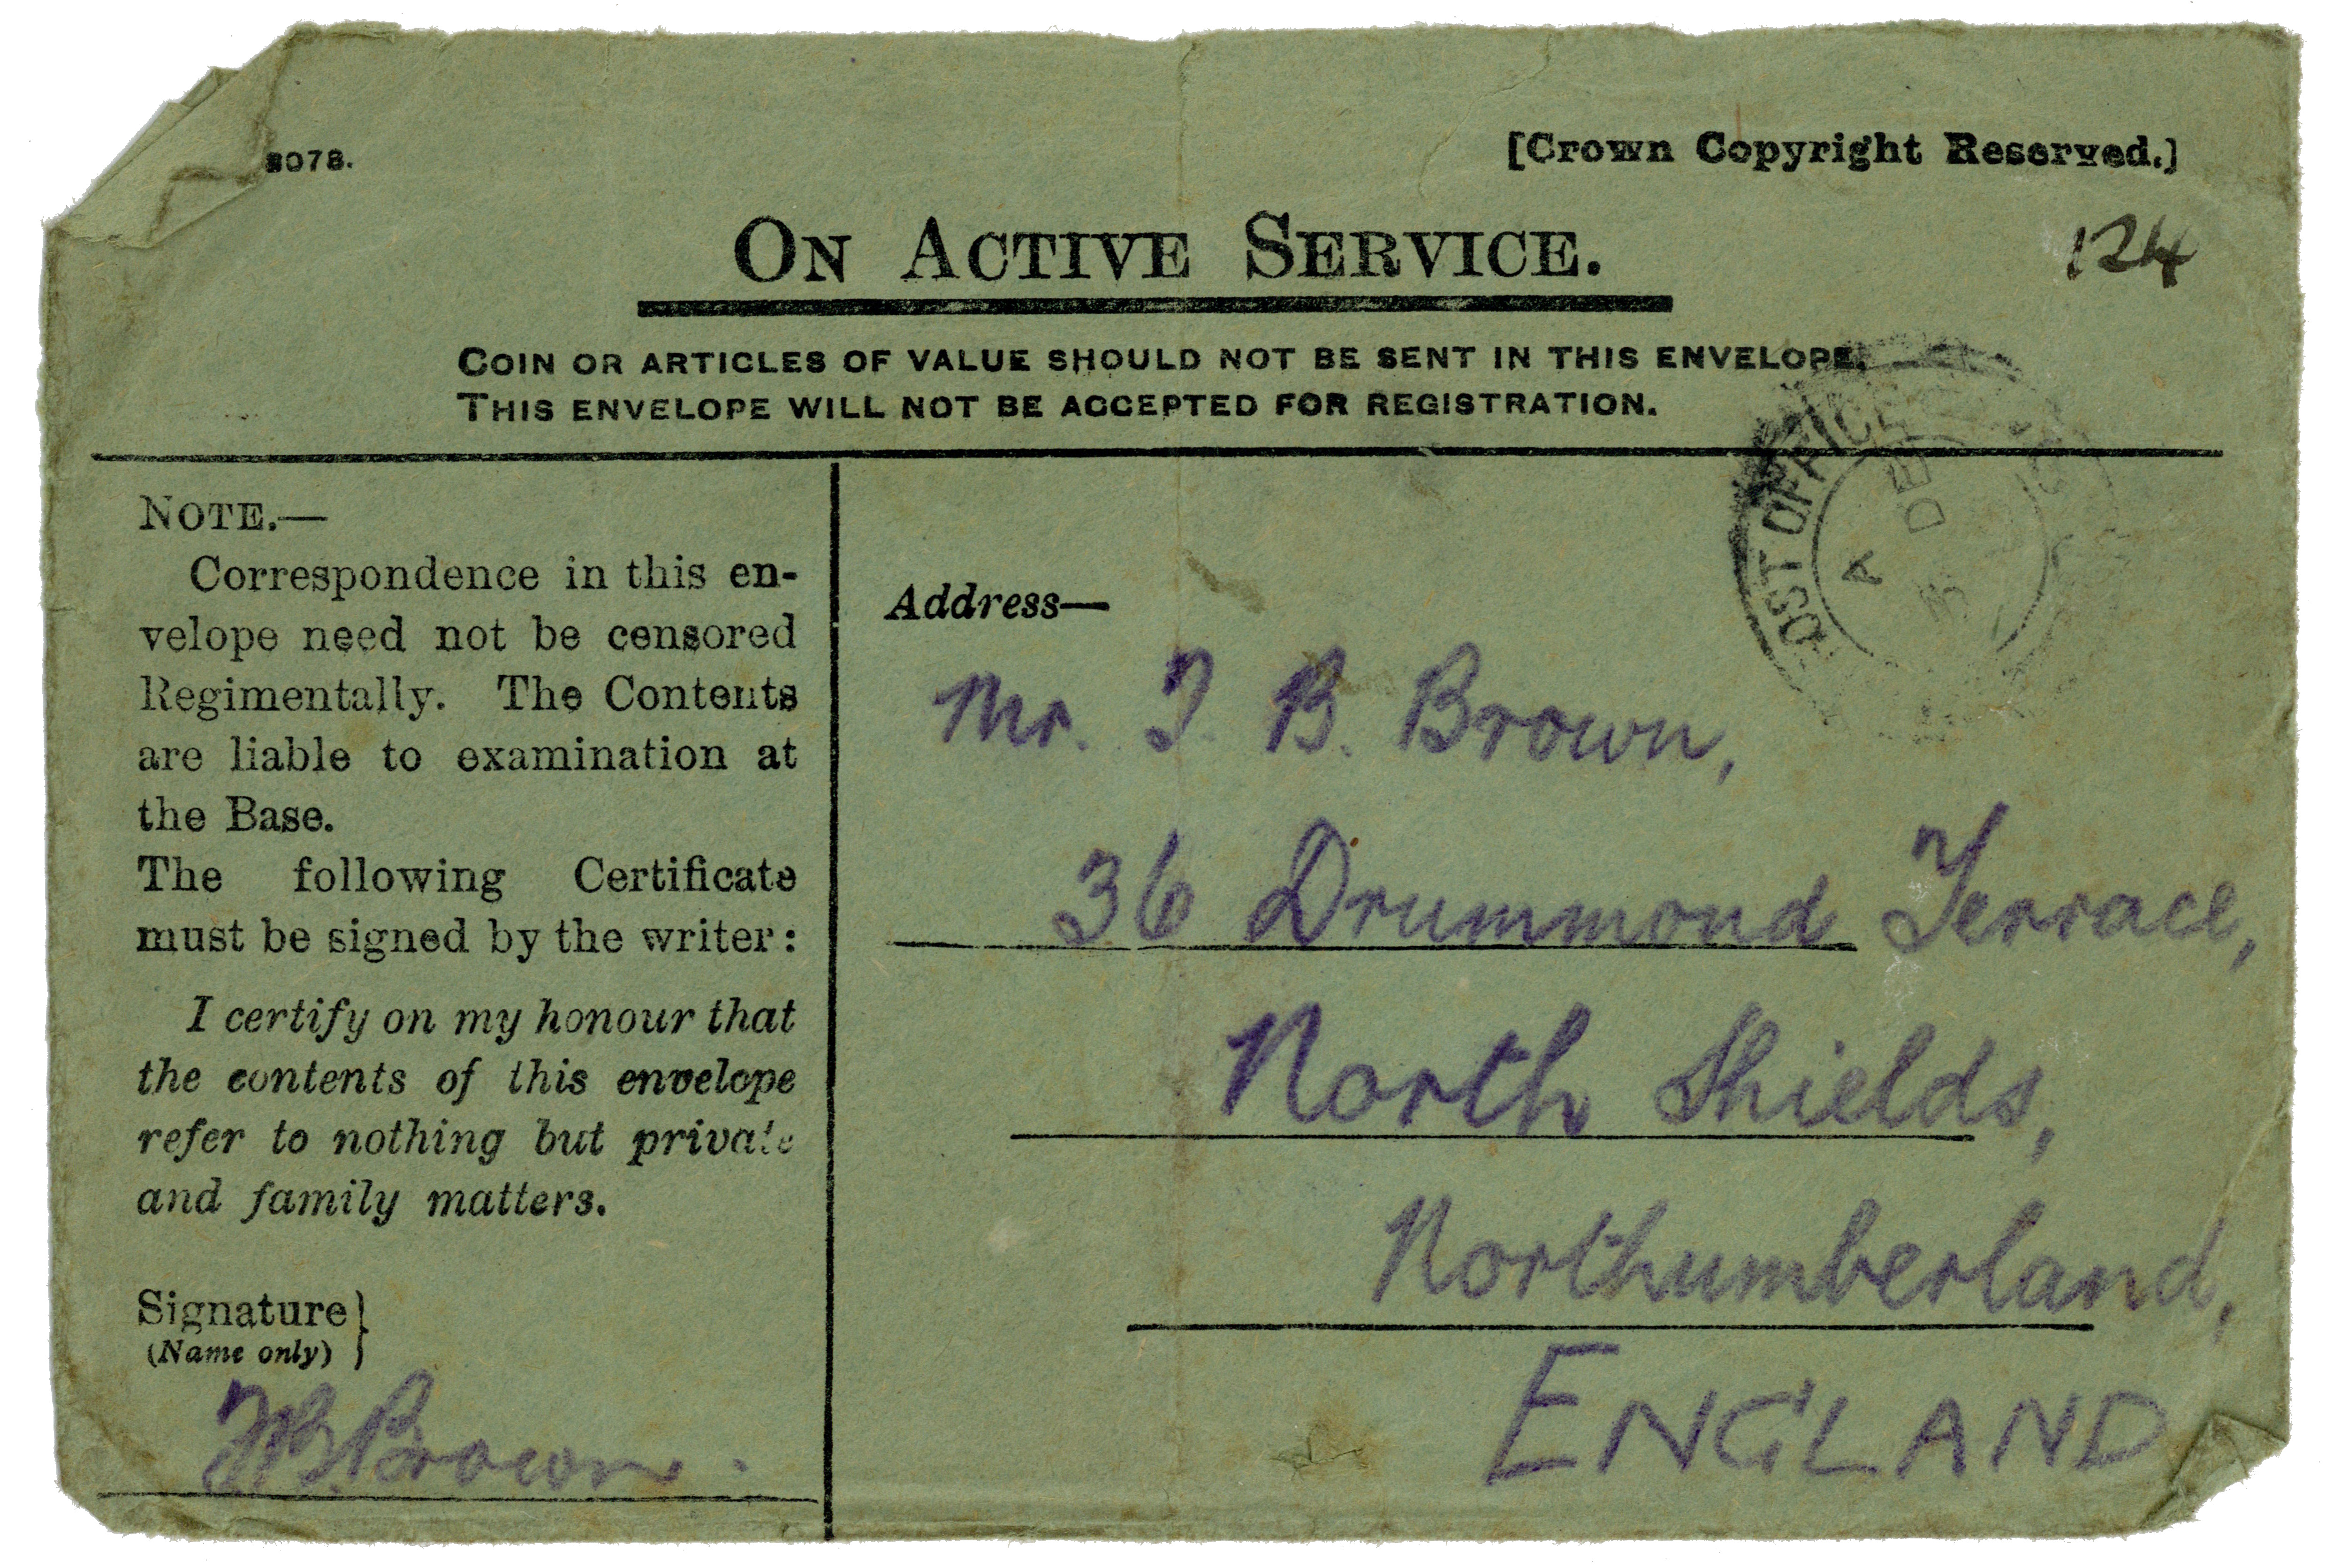 3078.
[Crown Copyright Reserved.]
124
ON ACTIVE SERVICE.
COIN OR ARTICLES OF VALUE SHOULD NOT BE SENT IN THIS ENVELOPE.
THIS ENVELOPE WILL NOT BE ACCEPTED FOR REGISTRATION.
POST OFFICE
A DE
3
NOTE.—
Correspondence in this en-
velope need not be censored
Regimentally. The Contents
are liable to examination at
the Base.
The following Certificate
must be signed by the writer:
I certify on my honour that
the contents of this envelope
refer to nothing but private
and family matters.
Signature}
(Name only)
T.B. Brown.
Address—
Mr. T. B. Brown,
36 Drummond Terrace,
North Shields,
Northumberland,
ENGLAND